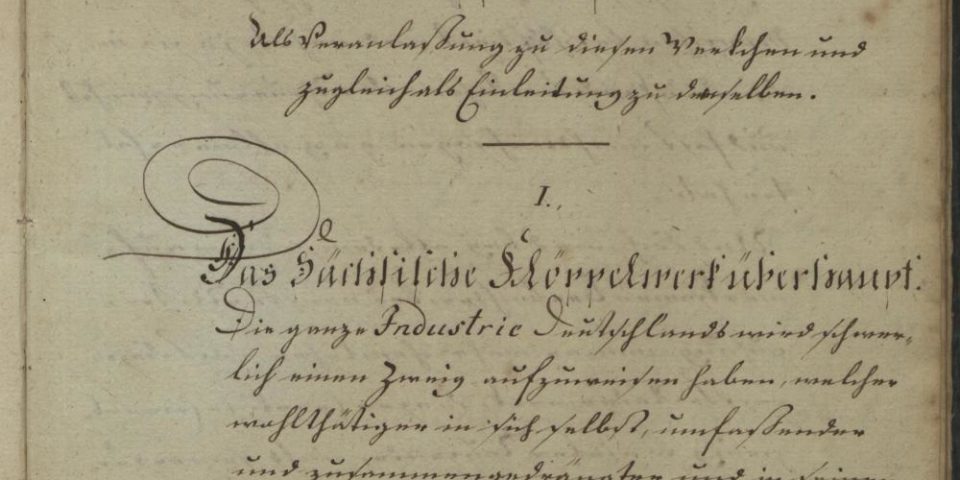 Als Veranlaßung zu diesen Werkchen und
zugleich als Einleitung zu demselben.
I.
Das Sächsische Klöppelwerk überhaupt.
Die ganze Industrie Deutschlands wird schwer-
lich einen Zweig aufzuweisen haben, welcher
wohlthätiger in sich selbst, umfaßender
und zusammengedrängter und in seiner